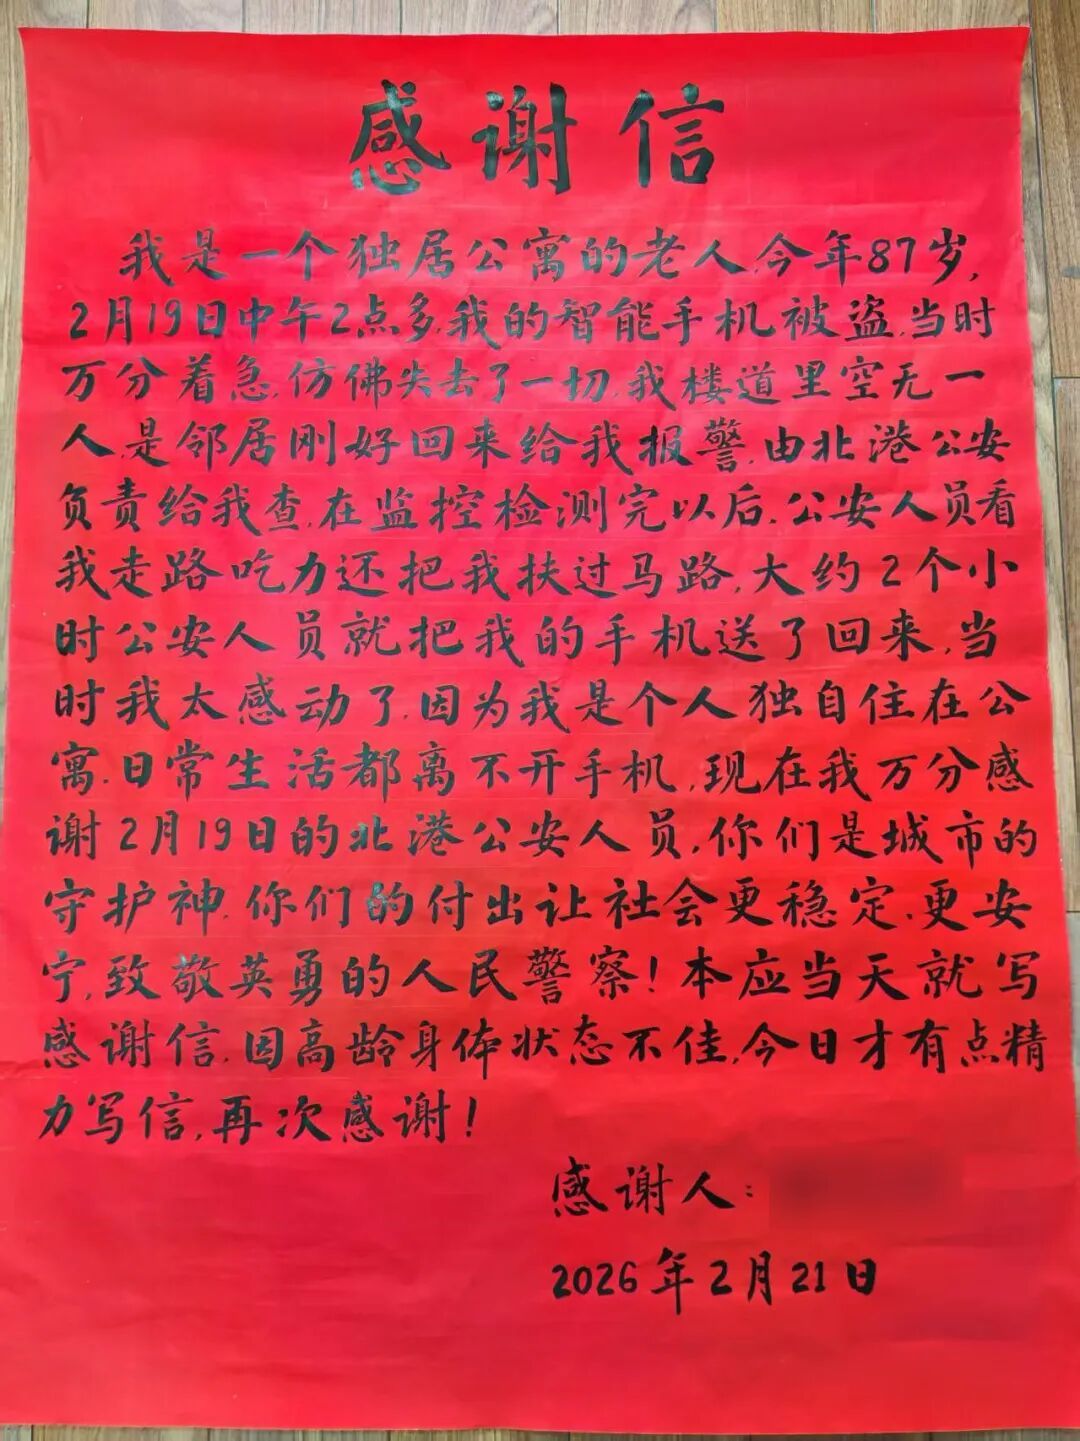 感谢信
我是一个独居公寓的老人,今年87岁,
2月19日中午2点多,我的智能手机被盗,当时
万分着急,仿佛失去了一切,我楼道里空无一
人,是邻居刚好回来给我报警,由北港公安
负责给我查,在监控检测完以后,公安人员看
我走路吃力还把我扶过马路,大约2个小
时公安人员就把我的手机送了回来,当
时我太感动了,因为我是个人独自住在公
寓,日常生活都离不开手机,现在我万分感
谢2月19日的北港公安人员,你们是城市的
守护神,你们的付出让社会更稳定,更安
宁,致敬英勇的人民警察!本应当天就写
感谢信,因高龄身体状态不佳,今日才有点精
力写信,再次感谢!
感谢人:
2026年2月21日